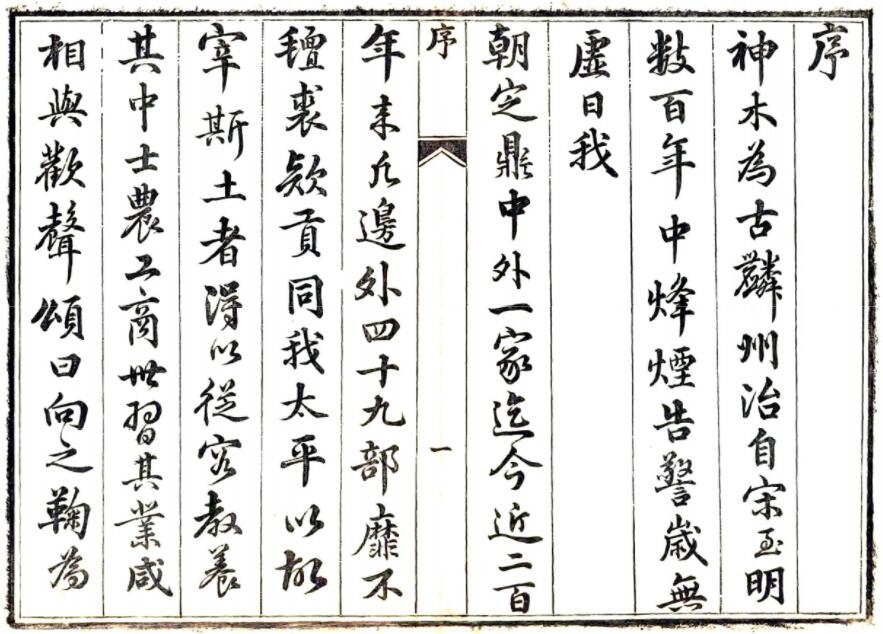 序
神木為古麟州治自宋至明
數百年中烽煙告警歲無
虛日我
朝定鼎中外一家迄今近二百
序
一
年來凡邊外四十九部靡不
氊裘欵貢同我太平以故
宰斯土者得以從容教養
其中士農工商世習其業咸
相與歡聲頌曰向之鞠為